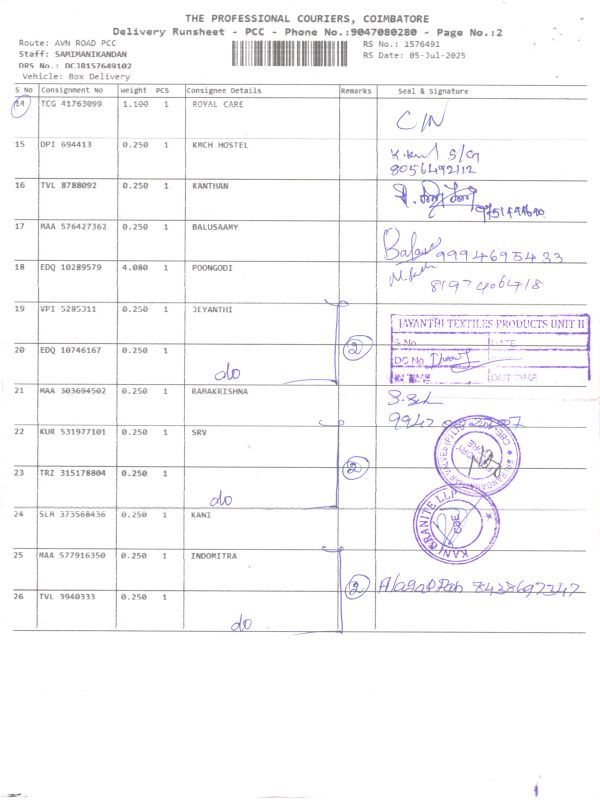 THE PROFESSIONAL COURIERS, COIMBATORE
Delivery Runsheet - PCC - Phone No.:9047080280 - Page No.:2
Route: AVN ROAD PCC RS No.: 1576491
Staff: SAMIMANIKANDAN RS Date: 05-Jul-2025
DRS No.: DCJB157649102
Vehicle: Box Delivery
S No Consignment No Weight PCS Consignee Details Remarks Seal & Signature
14 TCG 41763099 1.100 1 ROYAL CARE C/N
15 DPI 694413 0.250 1 KMCH HOSTEL S/G
8056492112
16 TVL 8788092 0.250 1 KANTHAN
17 MAA 576427362 0.250 1 BALUSAAMY 9994695433
18 EDQ 10289579 4.080 1 POONGODI 8197406418
19 VPI 5285311 0.250 1 JEYANTHI
JAYANTHI TEXTILES PRODUCTS UNIT II
S.No. DATE
20 EDQ 10746167 0.250 1 do 2 DC No.
IN TIME OUT TIME
21 MAA 303694502 0.250 1 RAMAKRISHNA
22 KUR 531977101 0.250 1 SRV
23 TRZ 315178804 0.250 1 do 2
24 SLM 373568436 0.250 1 KANI KANI GRANITE LLP CBE
25 MAA 577916350 0.250 1 INDOMITRA
2 8438697347
26 TVL 3940333 0.250 1 do